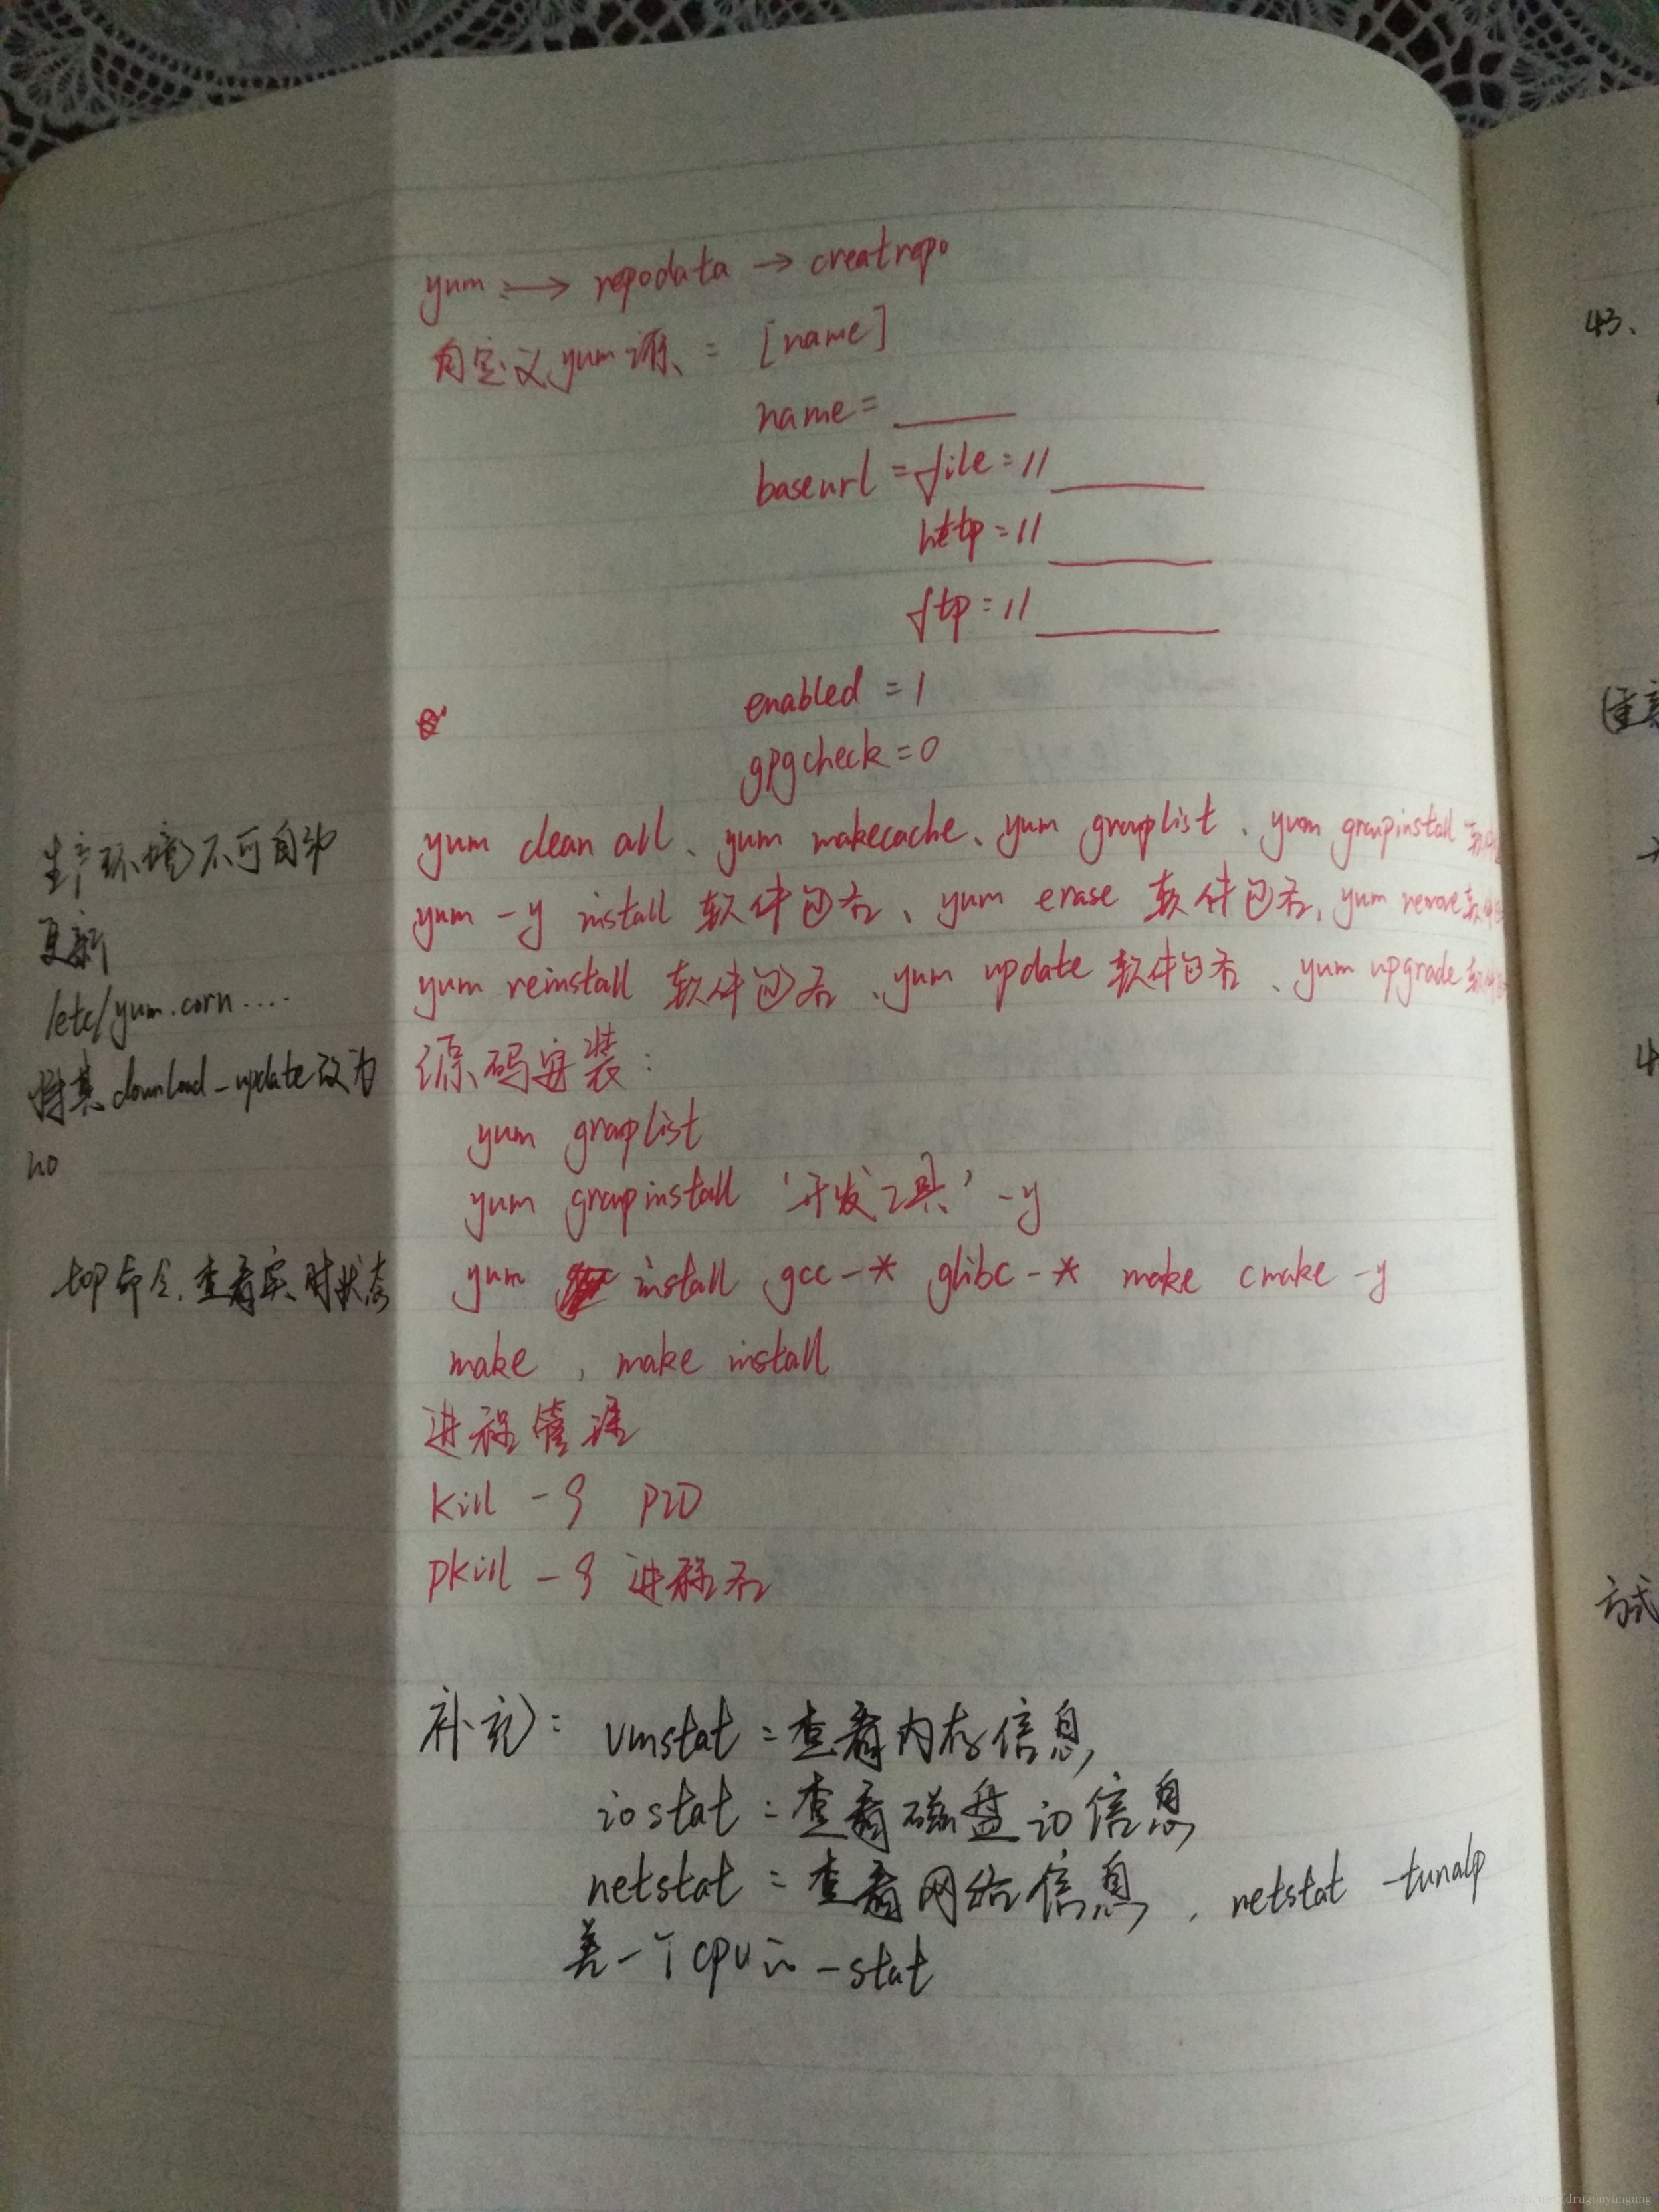 yum :→ repodata → creatrepo
自定义yum源、= [name]
name= ____
baseurl =file=// ____
http=// ____
ftp=// ____
enabled = 1
gpgcheck=0
yum clean all、yum makecache、yum grouplist、yum groupinstall 软件包
yum -y install 软件包名、yum erase 软件包名、yum remove 软件
yum reinstall 软件包名、yum update 软件包名、yum upgrade 软件
源码安装:
yum grouplist
yum groupinstall '开发工具' -y
yum install gcc-* glibc-* make cmake -y
make , make install
进程管理
kill -9 PID
pkill -9 进程名
补充: vmstat = 查看内存信息
iostat = 查看磁盘io信息
netstat = 查看网络信息, netstat -tunalp
差一个cpu的-stat
生产环境不可自动
更新
/etc/yum.corn....
将其download_update改为
no
top命令.查看实时状态
43、
(重
4
方式
dragonyangang